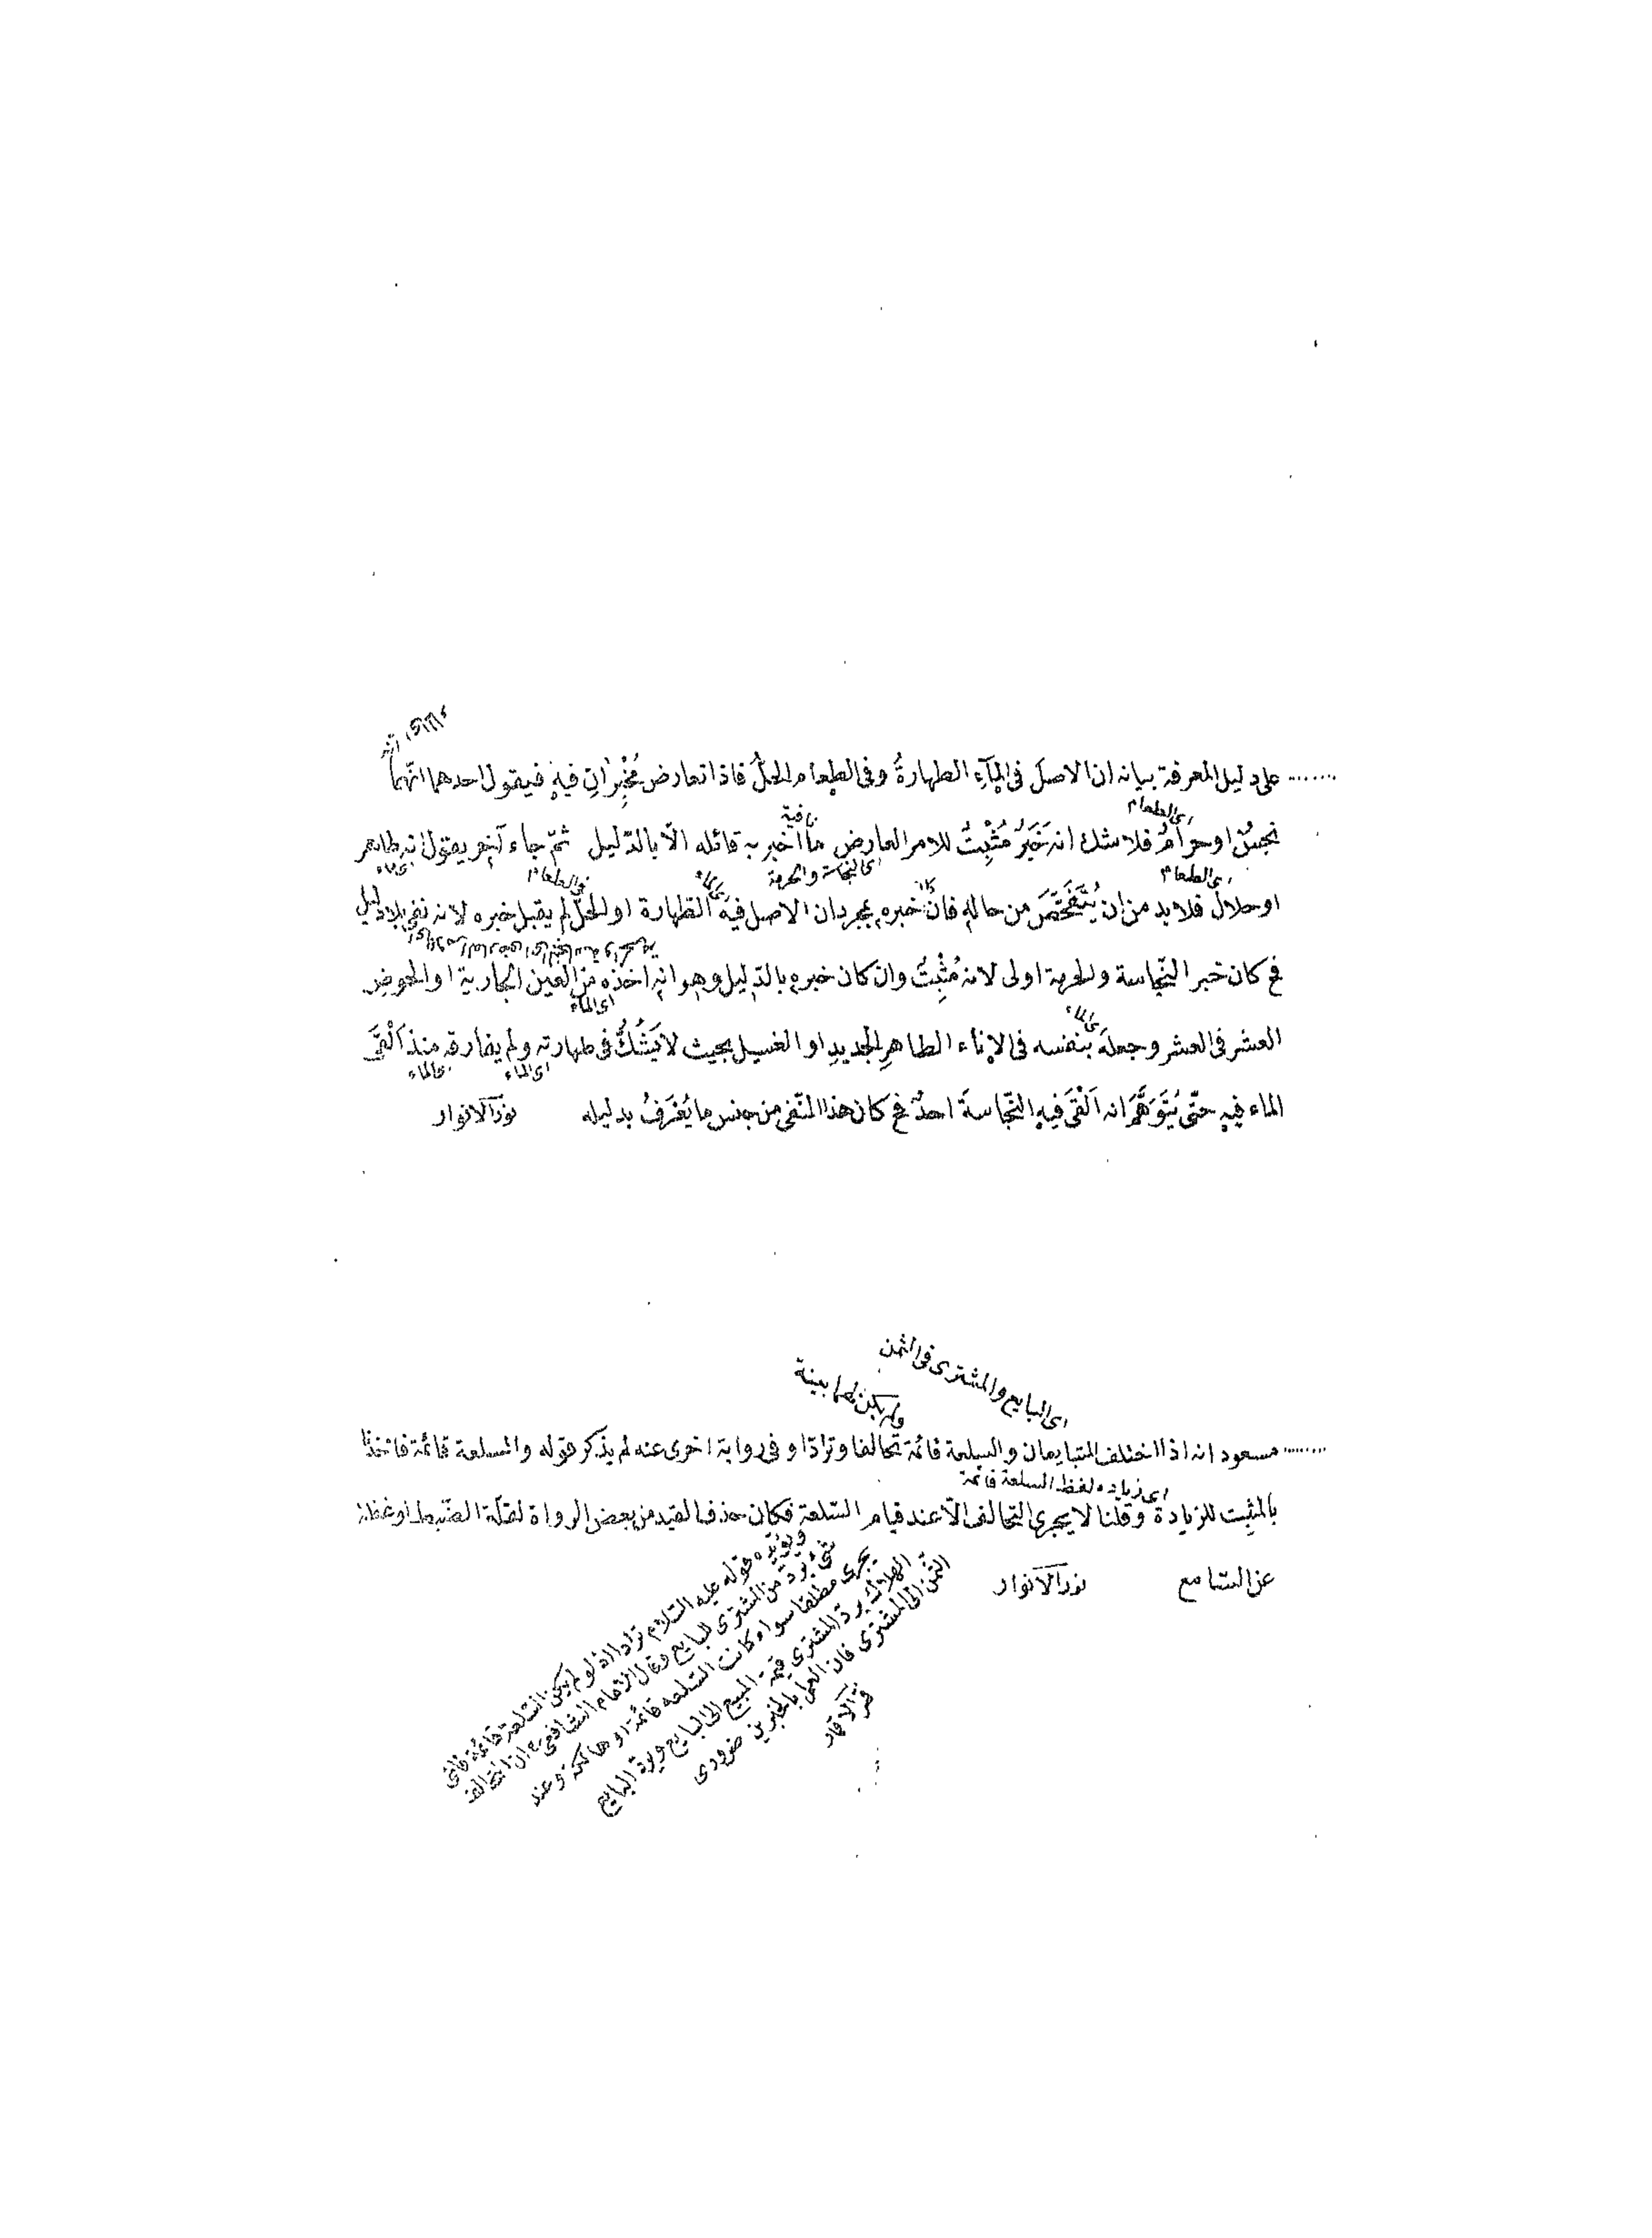 ...... على دليل المعرفة بيانه ان الاصل فى المآءِ الطهارةُ وفى الطعام الحلُّ فاذا تعارض مُخْبِرَانِ فيهِ فيقول احدهما انّهما
اى الطعام
نافية
نجسٌ او حرامٌ فلا شك انه خَبَرٌ مُثْبِتٌ للامر العارض ما اخبر به قائله الّا بالدّليل ثمّ جاء آخر يقول انه طاهر
اى الطعام
اى النجاسة والحرمة
اى الماء
او حلال فلا بد من ان يُتَفَحَّصَ من حالهِ فان كان خبره بمجرد ان الاصل فيه الطهارة او الحلّ لم يقبل خبره لانه نفى بلا دليل
فى الطعام
فح كان خبر النّجاسة والحرمة اولى لانه مُثْبِتٌ وان كان خبره بالدّليل وهو انه اخذه من العين الجارية او الحوض
اى الماء
اى الماء
العشر فى العشر وجعله بنفسه فى الاناء الطاهر الجديد او الغسيل بحيث لا يَشُكُّ فى طهارته ولم يفارقه منذ اَلْقَى
اى الماء
اى الماء
الماء فيهِ حتّى يُتَوَهَّمَ انه اَلْقَى فيهِ النّجاسةَ احدٌ فح كان هذا النّفى من جنس ما يُعْرَفُ بدليله نور الانوار
اى البايع والمشترى فى الثمن
ولم يكن لهما بينة
...... مسعود انه اذا اختلف المتبايعان والسلعة قائمة تحالفا وترادّا وفى رواية اخرى عنه لم يذكر قوله والسلعة قائمة فاخذنا
اى زياده لفظ السلعة قائمة
بالمثبت للزيادة وقلنا لا يجرى التحالف الّا عند قيام السّلعة فكان حذف القيد من بعض الرواة لقلّة الضّبط او غفلة
عن السّامع نور الانوار
ويؤيّده قوله عليه السّلام ترادا اذ لو لم يكن السّلعة قائمة فاى
شئ يردّ من المشترى للبايع وقال الامام الشافعى رح ان التحالف
يجرى مطلقا سواء كانت السّلعة قائمة او هالكة وعند
الهلاك يردّ المشترى قيمة المبيع الى البايع ويردّ البايع
الثّمن الى المشترى فان العمل بالخبرين ضرورى
قمر الاقمار